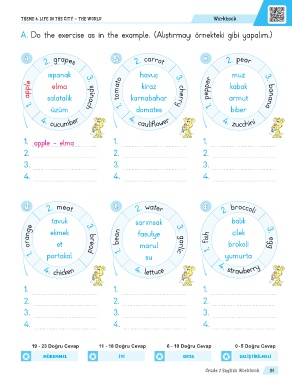 THEME 6: LIFE IN THE CITY - THE WORLD
Workbook
A. Do the exercise as in the example. (Alıştırmayı örnekteki gibi yapalım.)
1. apple
2. grapes
3. spinach
4. cucumber
ıspanak
elma
salatalık
üzüm
1. tomato
2. carrot
3. cherry
4. cauliflower
havuç
kiraz
karnabahar
domates
1. pepper
2. pear
3. banana
4. zucchini
muz
kabak
armut
biber
1. apple - elma
2.
3.
4.
1.
2.
3.
4.
1.
2.
3.
4.
1. orange
2. meat
3. bread
4. chicken
tavuk
ekmek
et
portakal
1. bean
2. water
3. garlic
4. lettuce
sarımsak
fasulye
marul
su
1. fish
2. broccoli
3. egg
4. strawberry
balık
çilek
brokoli
yumurta
1.
2.
3.
4.
1.
2.
3.
4.
1.
2.
3.
4.
19 - 23 Doğru Cevap
11 - 18 Doğru Cevap
6 - 10 Doğru Cevap
0-5 Doğru Cevap
MÜKEMMEL
İYİ
ORTA
GELİŞTİRİLMELİ
Grade 2 English Workbook